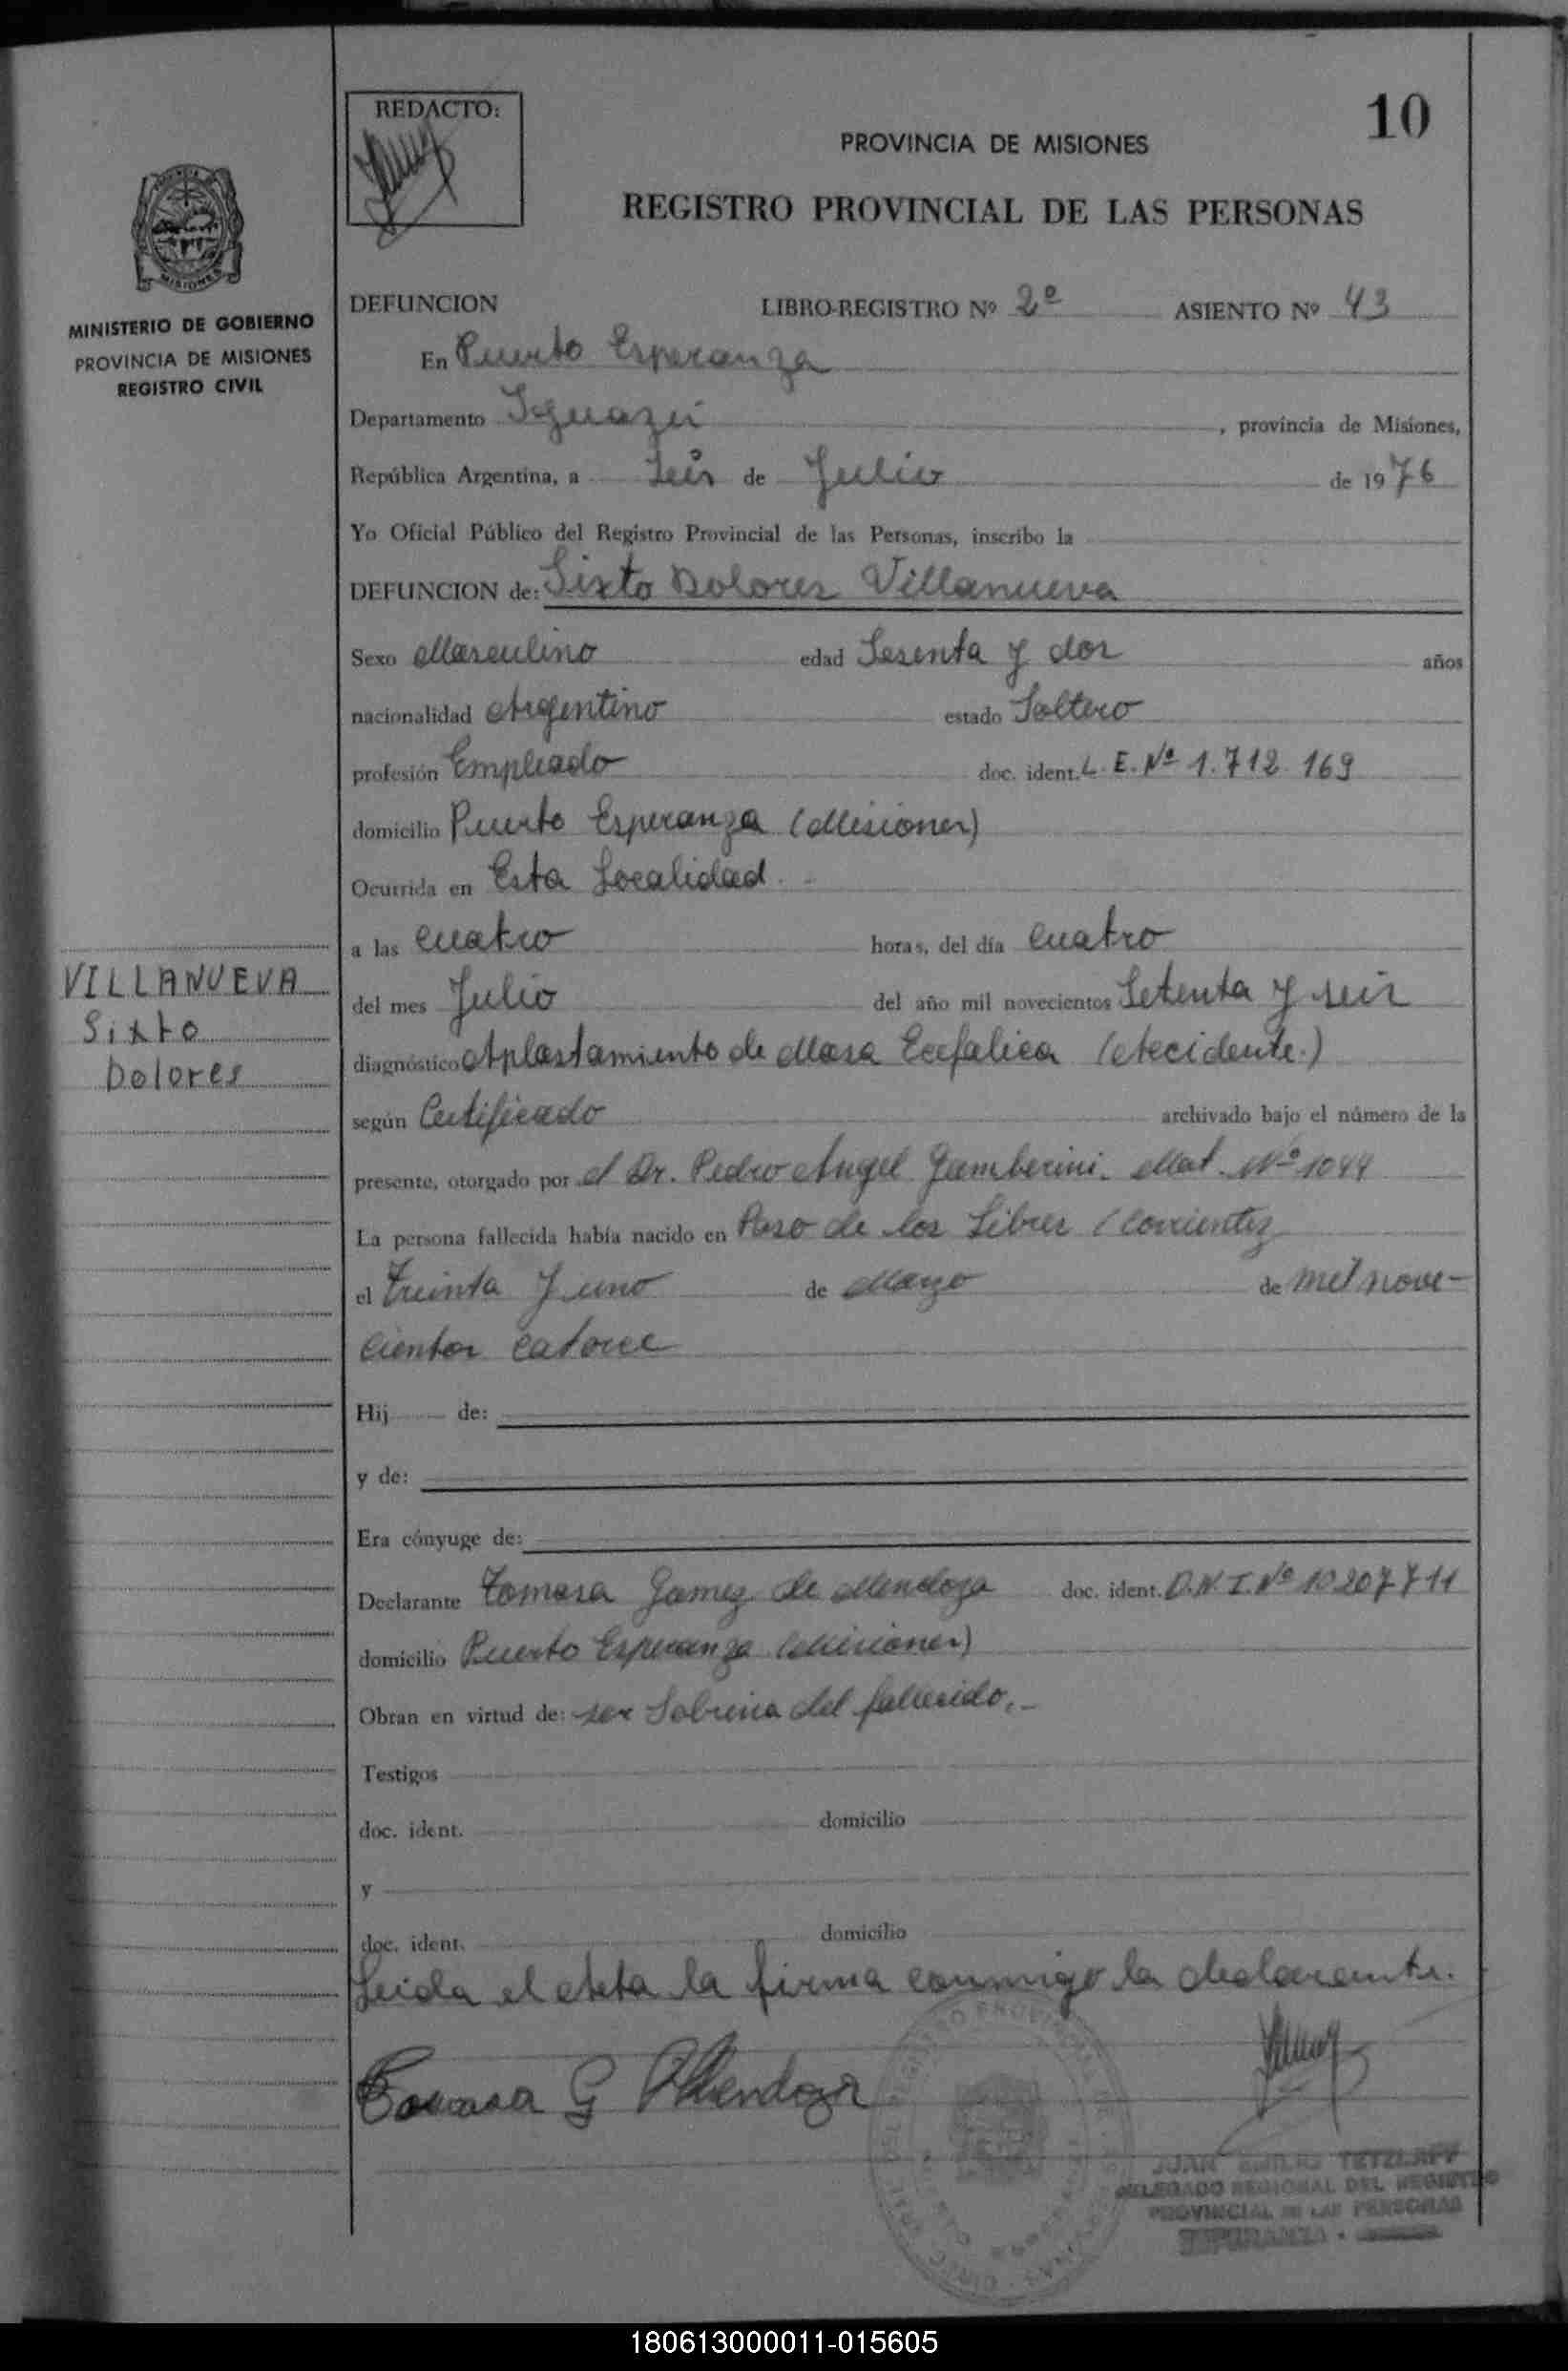 REDACTO:
10
PROVINCIA DE MISIONES
REGISTRO PROVINCIAL DE LAS PERSONAS
MISIONES
MINISTERIO DE GOBIERNO
PROVINCIA DE MISIONES
REGISTRO CIVIL
DEFUNCION LIBRO-REGISTRO Nº 2º ASIENTO Nº 43
En Puerto Esperanza
Departamento Iguazú, provincia de Misiones,
República Argentina, a Seis de Julio de 1976
Yo Oficial Público del Registro Provincial de las Personas, inscribo la
DEFUNCION de: Sixto Dolores Villanueva
Sexo Masculino edad Sesenta y dos años
nacionalidad Argentino estado Soltero
profesión Empleado doc. ident. L.E. Nº 1.712.169
domicilio Puerto Esperanza (Misiones)
Ocurrida en Esta Localidad.
a las cuatro horas, del día cuatro
VILLANUEVA
Sixto
Dolores
del mes Julio del año mil novecientos Setenta y seis
diagnóstico Aplastamiento de Masa Ecefalica (Accidente.)
según Certificado archivado bajo el número de la
presente, otorgado por el Dr. Pedro Angel Gamberini. Mat. Nº 1044
La persona fallecida había nacido en Paso de los Libres (Corrientes
el treinta y uno de Marzo de mil nove-
cientos catorce
Hij de:
y de:
Era cónyuge de:
Declarante Tomasa Gamez de Mendoza doc. ident. D.N.I. Nº 10207711
domicilio Puerto Esperanza (Misiones)
Obran en virtud de: ser Sobrina del fallecido.-
Testigos
doc. ident. domicilio
y
doc. ident. domicilio
Leida el Acta la firma conmigo la declarante.
Tomasa G Mendoza
JUAN TETZLAFF
DELEGADO REGIONAL DEL REGISTRO
PROVINCIAL DE LAS PERSONAS
ESPERANZA
180613000011-015605